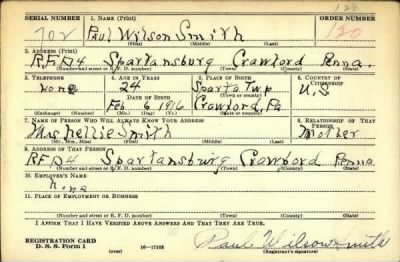 128
SERIAL NUMBER 1. NAME (Print) ORDER NUMBER
702 Paul Wilson Smith 120
(First) (Middle) (Last)
2. ADDRESS (Print)
R.F.D4 Spartansburg Crawford Penna.
(Number and street or R. F. D. number) (Town) (County) (State)
3. TELEPHONE 4. AGE IN YEARS 5. PLACE OF BIRTH 6. COUNTRY OF CITIZENSHIP
None 24 Sparta Twp U.S
DATE OF BIRTH (Town or county)
Feb 6 1916 Crawford, Pa
(Exchange) (Number) (Mo.) (Day) (Yr.) (State or country)
7. NAME OF PERSON WHO WILL ALWAYS KNOW YOUR ADDRESS 8. RELATIONSHIP OF THAT PERSON
Mrs Nellie Smith Mother
(Mr., Mrs., Miss) (First) (Middle) (Last)
9. ADDRESS OF THAT PERSON
RFD4 Spartansburg Crawford Penna
(Number and street or R. F. D. number) (Town) (County) (State)
10. EMPLOYER'S NAME
None
11. PLACE OF EMPLOYMENT OR BUSINESS
(Number and street or R. F. D. number) (Town) (County) (State)
I AFFIRM THAT I HAVE VERIFIED ABOVE ANSWERS AND THAT THEY ARE TRUE.
REGISTRATION CARD
D. S. S. Form 1 (over) 16—17105 Paul Wilson Smith
(Registrant's signature)